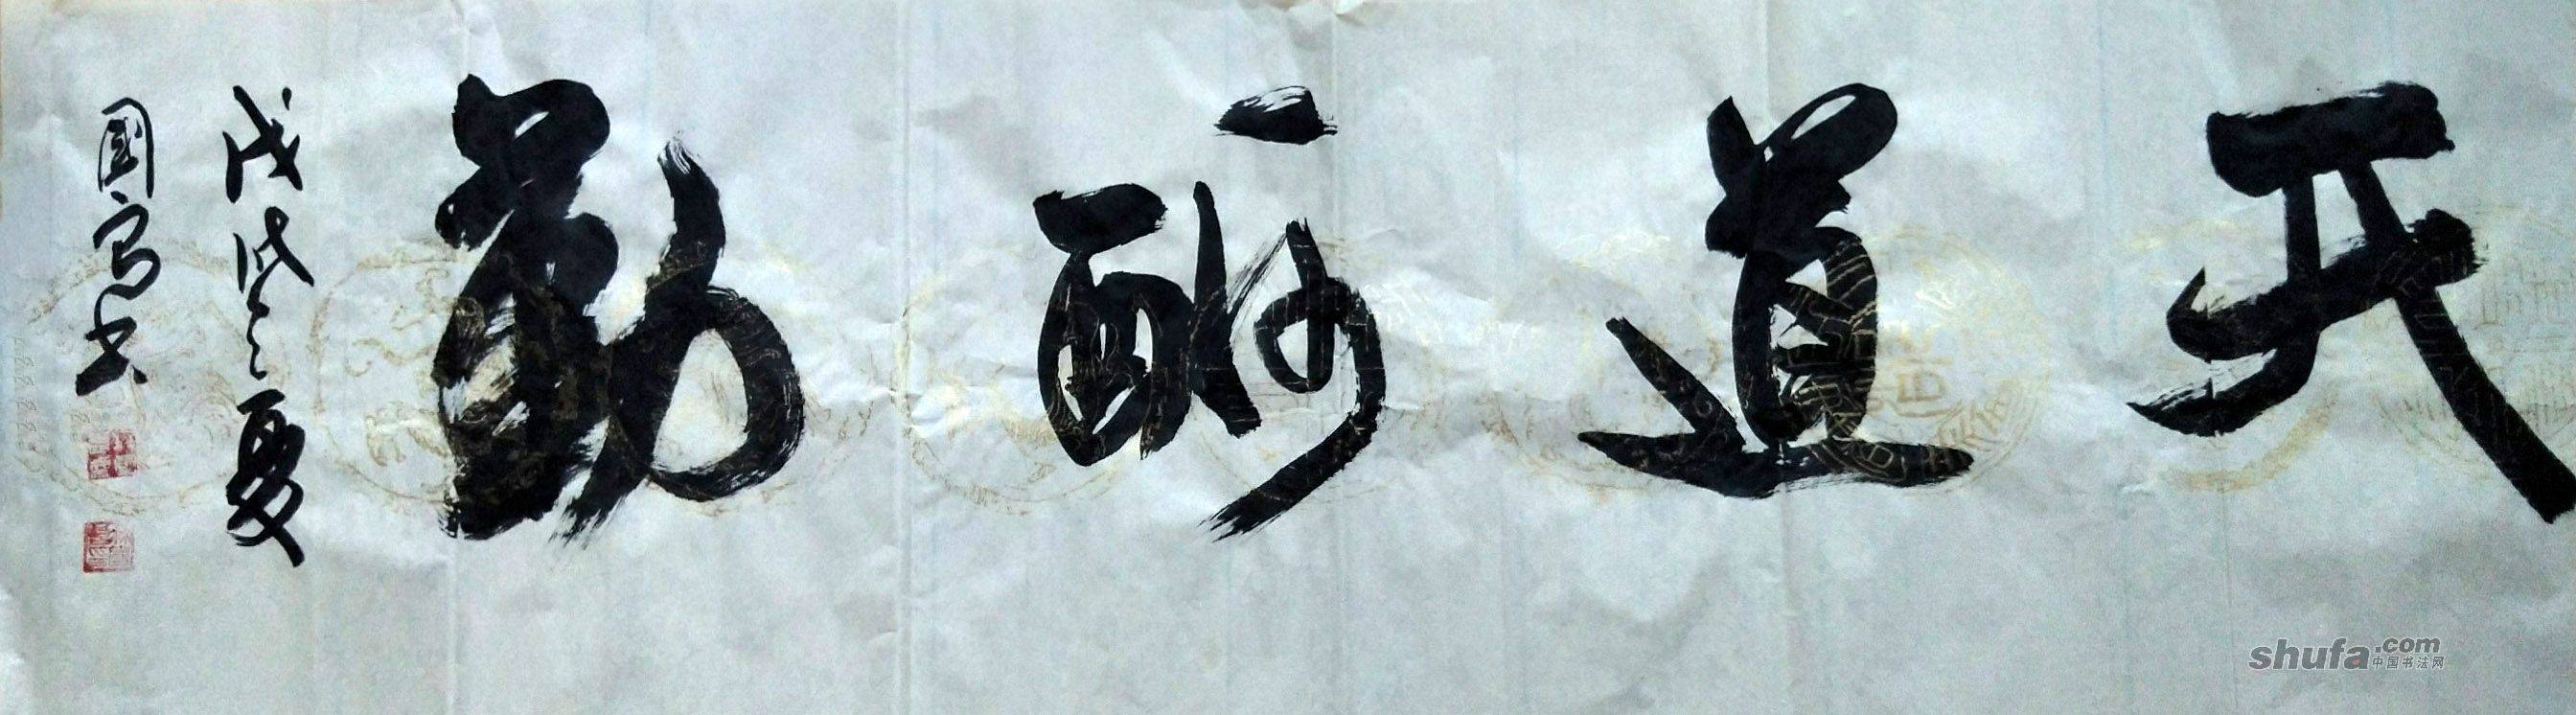 天道酬勤
戊戌之夏
國富书
shufa.com
中国书法网